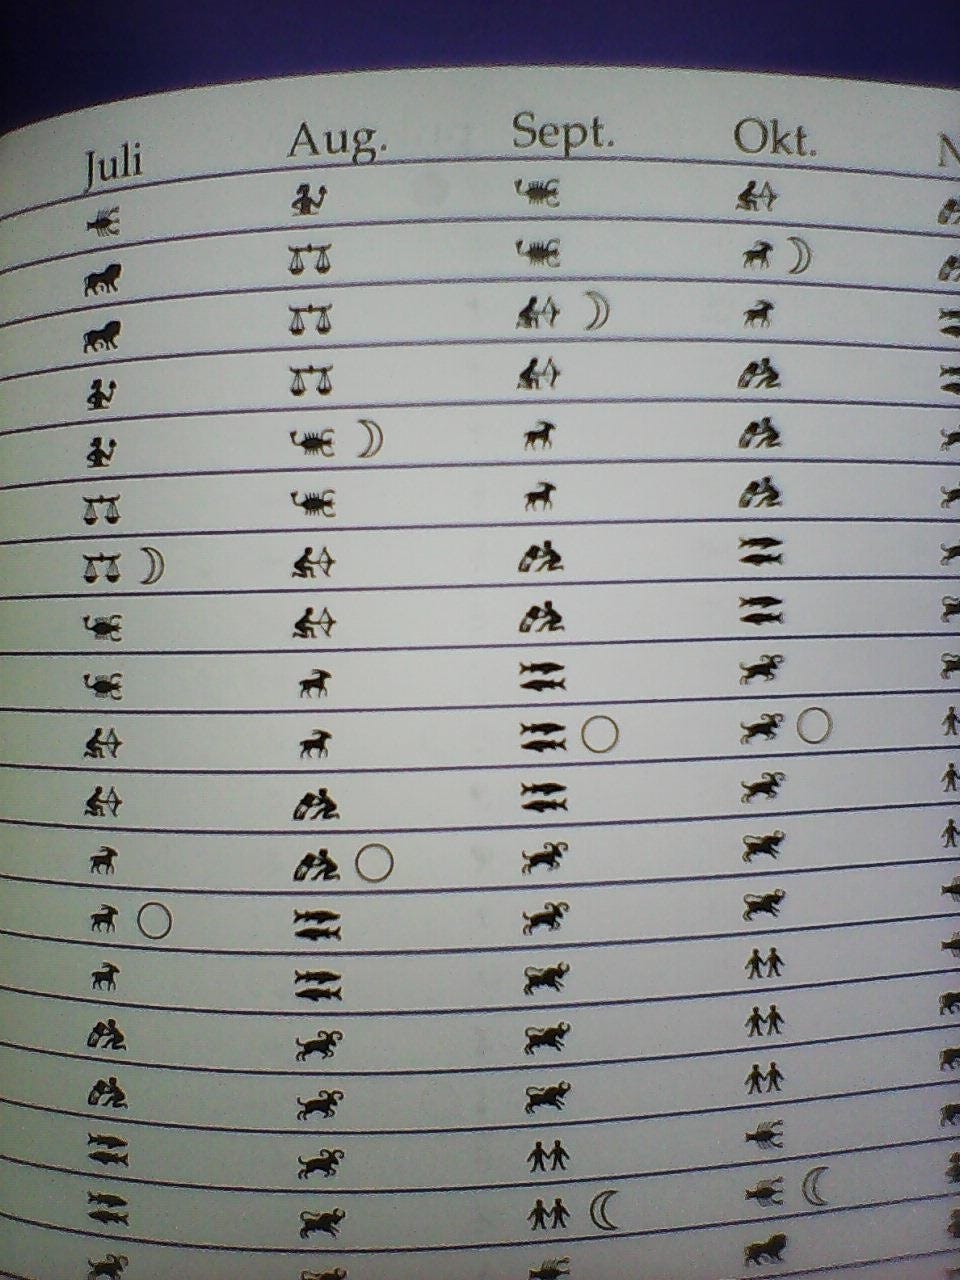 Juli Aug. Sept. Okt.